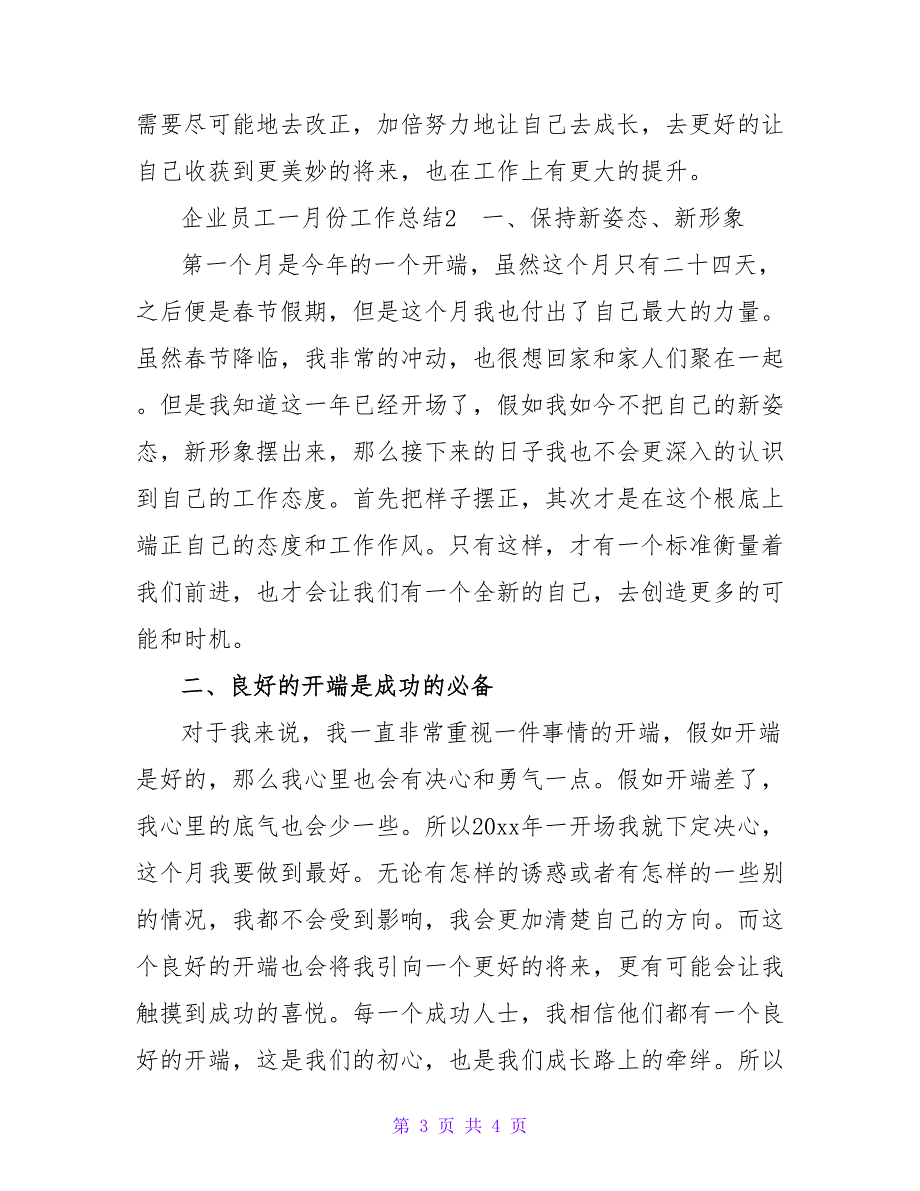 需要尽可能地去改正，加倍努力地让自己去成长，去更好的让
自己收获到更美妙的将来，也在工作上有更大的提升。
企业员工一月份工作总结2　一、保持新姿态、新形象
第一个月是今年的一个开端，虽然这个月只有二十四天，
之后便是春节假期，但是这个月我也付出了自己最大的力量。
虽然春节降临，我非常的冲动，也很想回家和家人们聚在一起
。但是我知道这一年已经开场了，假如我如今不把自己的新姿
态，新形象摆出来，那么接下来的日子我也不会更深入的认识
到自己的工作态度。首先把样子摆正，其次才是在这个根底上
端正自己的态度和工作作风。只有这样，才有一个标准衡量着
我们前进，也才会让我们有一个全新的自己，去创造更多的可
能和时机。
二、良好的开端是成功的必备
对于我来说，我一直非常重视一件事情的开端，假如开端
是好的，那么我心里也会有决心和勇气一点。假如开端差了，
我心里的底气也会少一些。所以20xx年一开场我就下定决心，
这个月我要做到最好。无论有怎样的诱惑或者有怎样的一些别
的情况，我都不会受到影响，我会更加清楚自己的方向。而这
个良好的开端也会将我引向一个更好的将来，更有可能会让我
触摸到成功的喜悦。每一个成功人士，我相信他们都有一个良
好的开端，这是我们的初心，也是我们成长路上的牵绊。所以
第 3 页 共 4 页